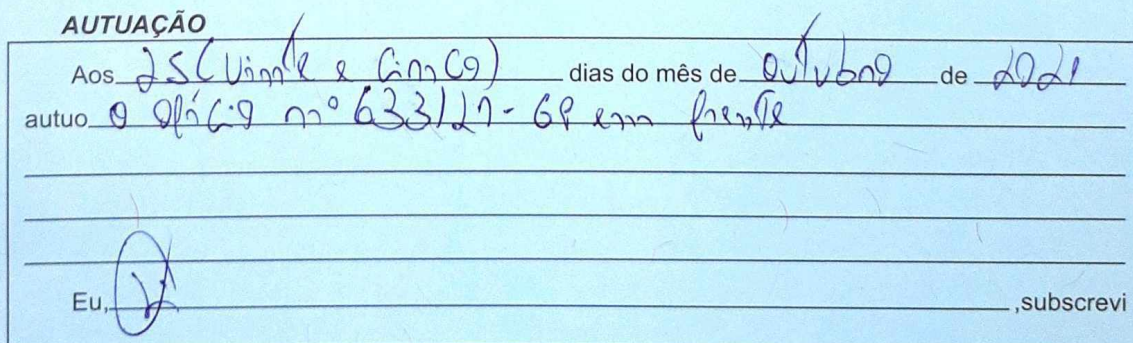 AUTUAÇÃO
Aos 25 (Vinte e Cinco) dias do mês de outubro de 2021
autuo o ofício nº 633/21- GP em frente
Eu, ,subscrevi